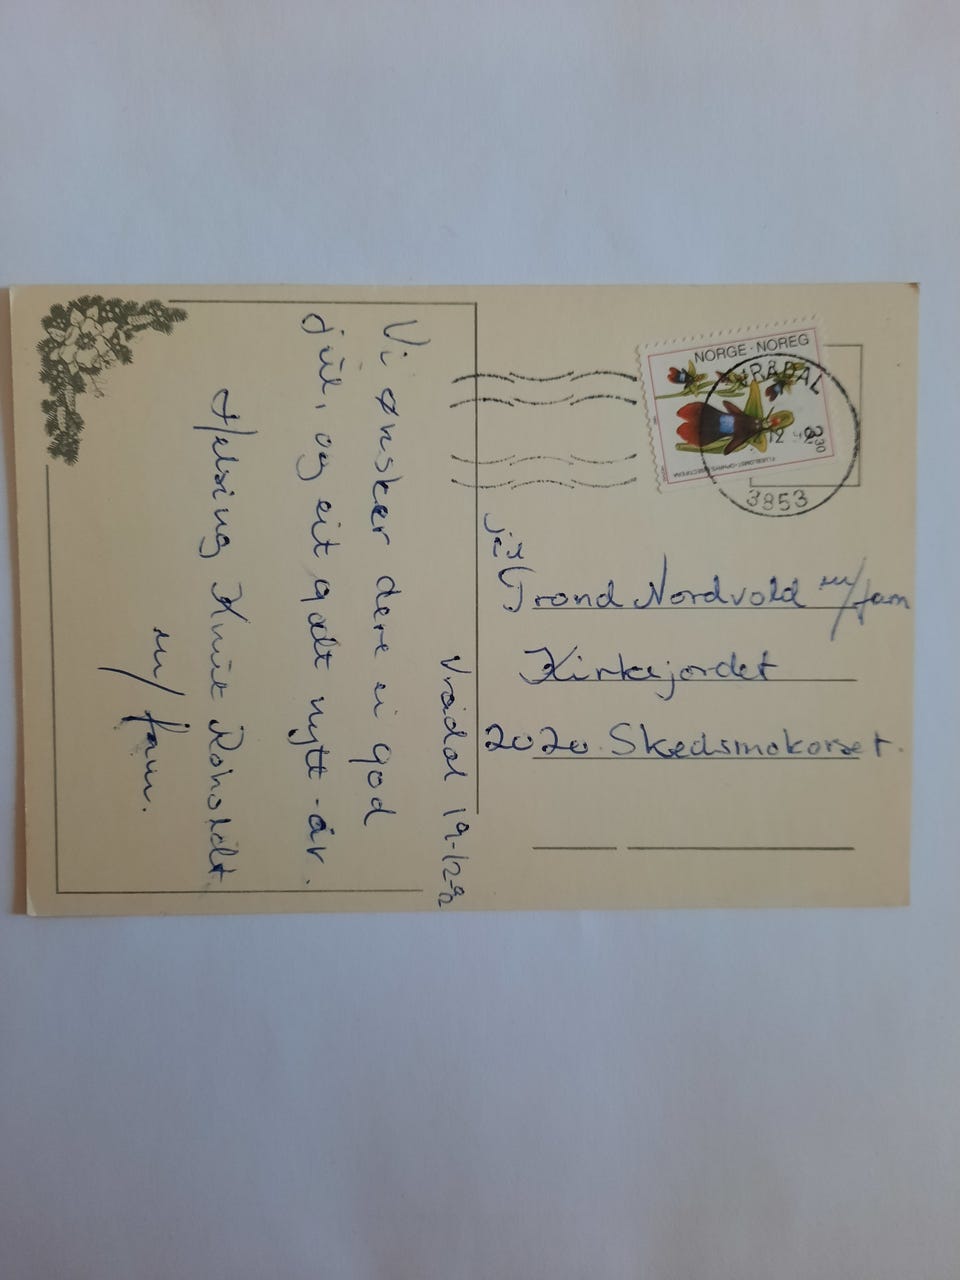 Vrådal 19-12-92
Vi ønsker dere ei god
jul, og eit godt nytt-år.
Helsing Knut Roholdt
m/fam.
NORGE · NOREG
VRÅDAL
12
3853
330
Til
Trond Nordvold m/fam
Kirkejordet
2020 Skedsmokorset.